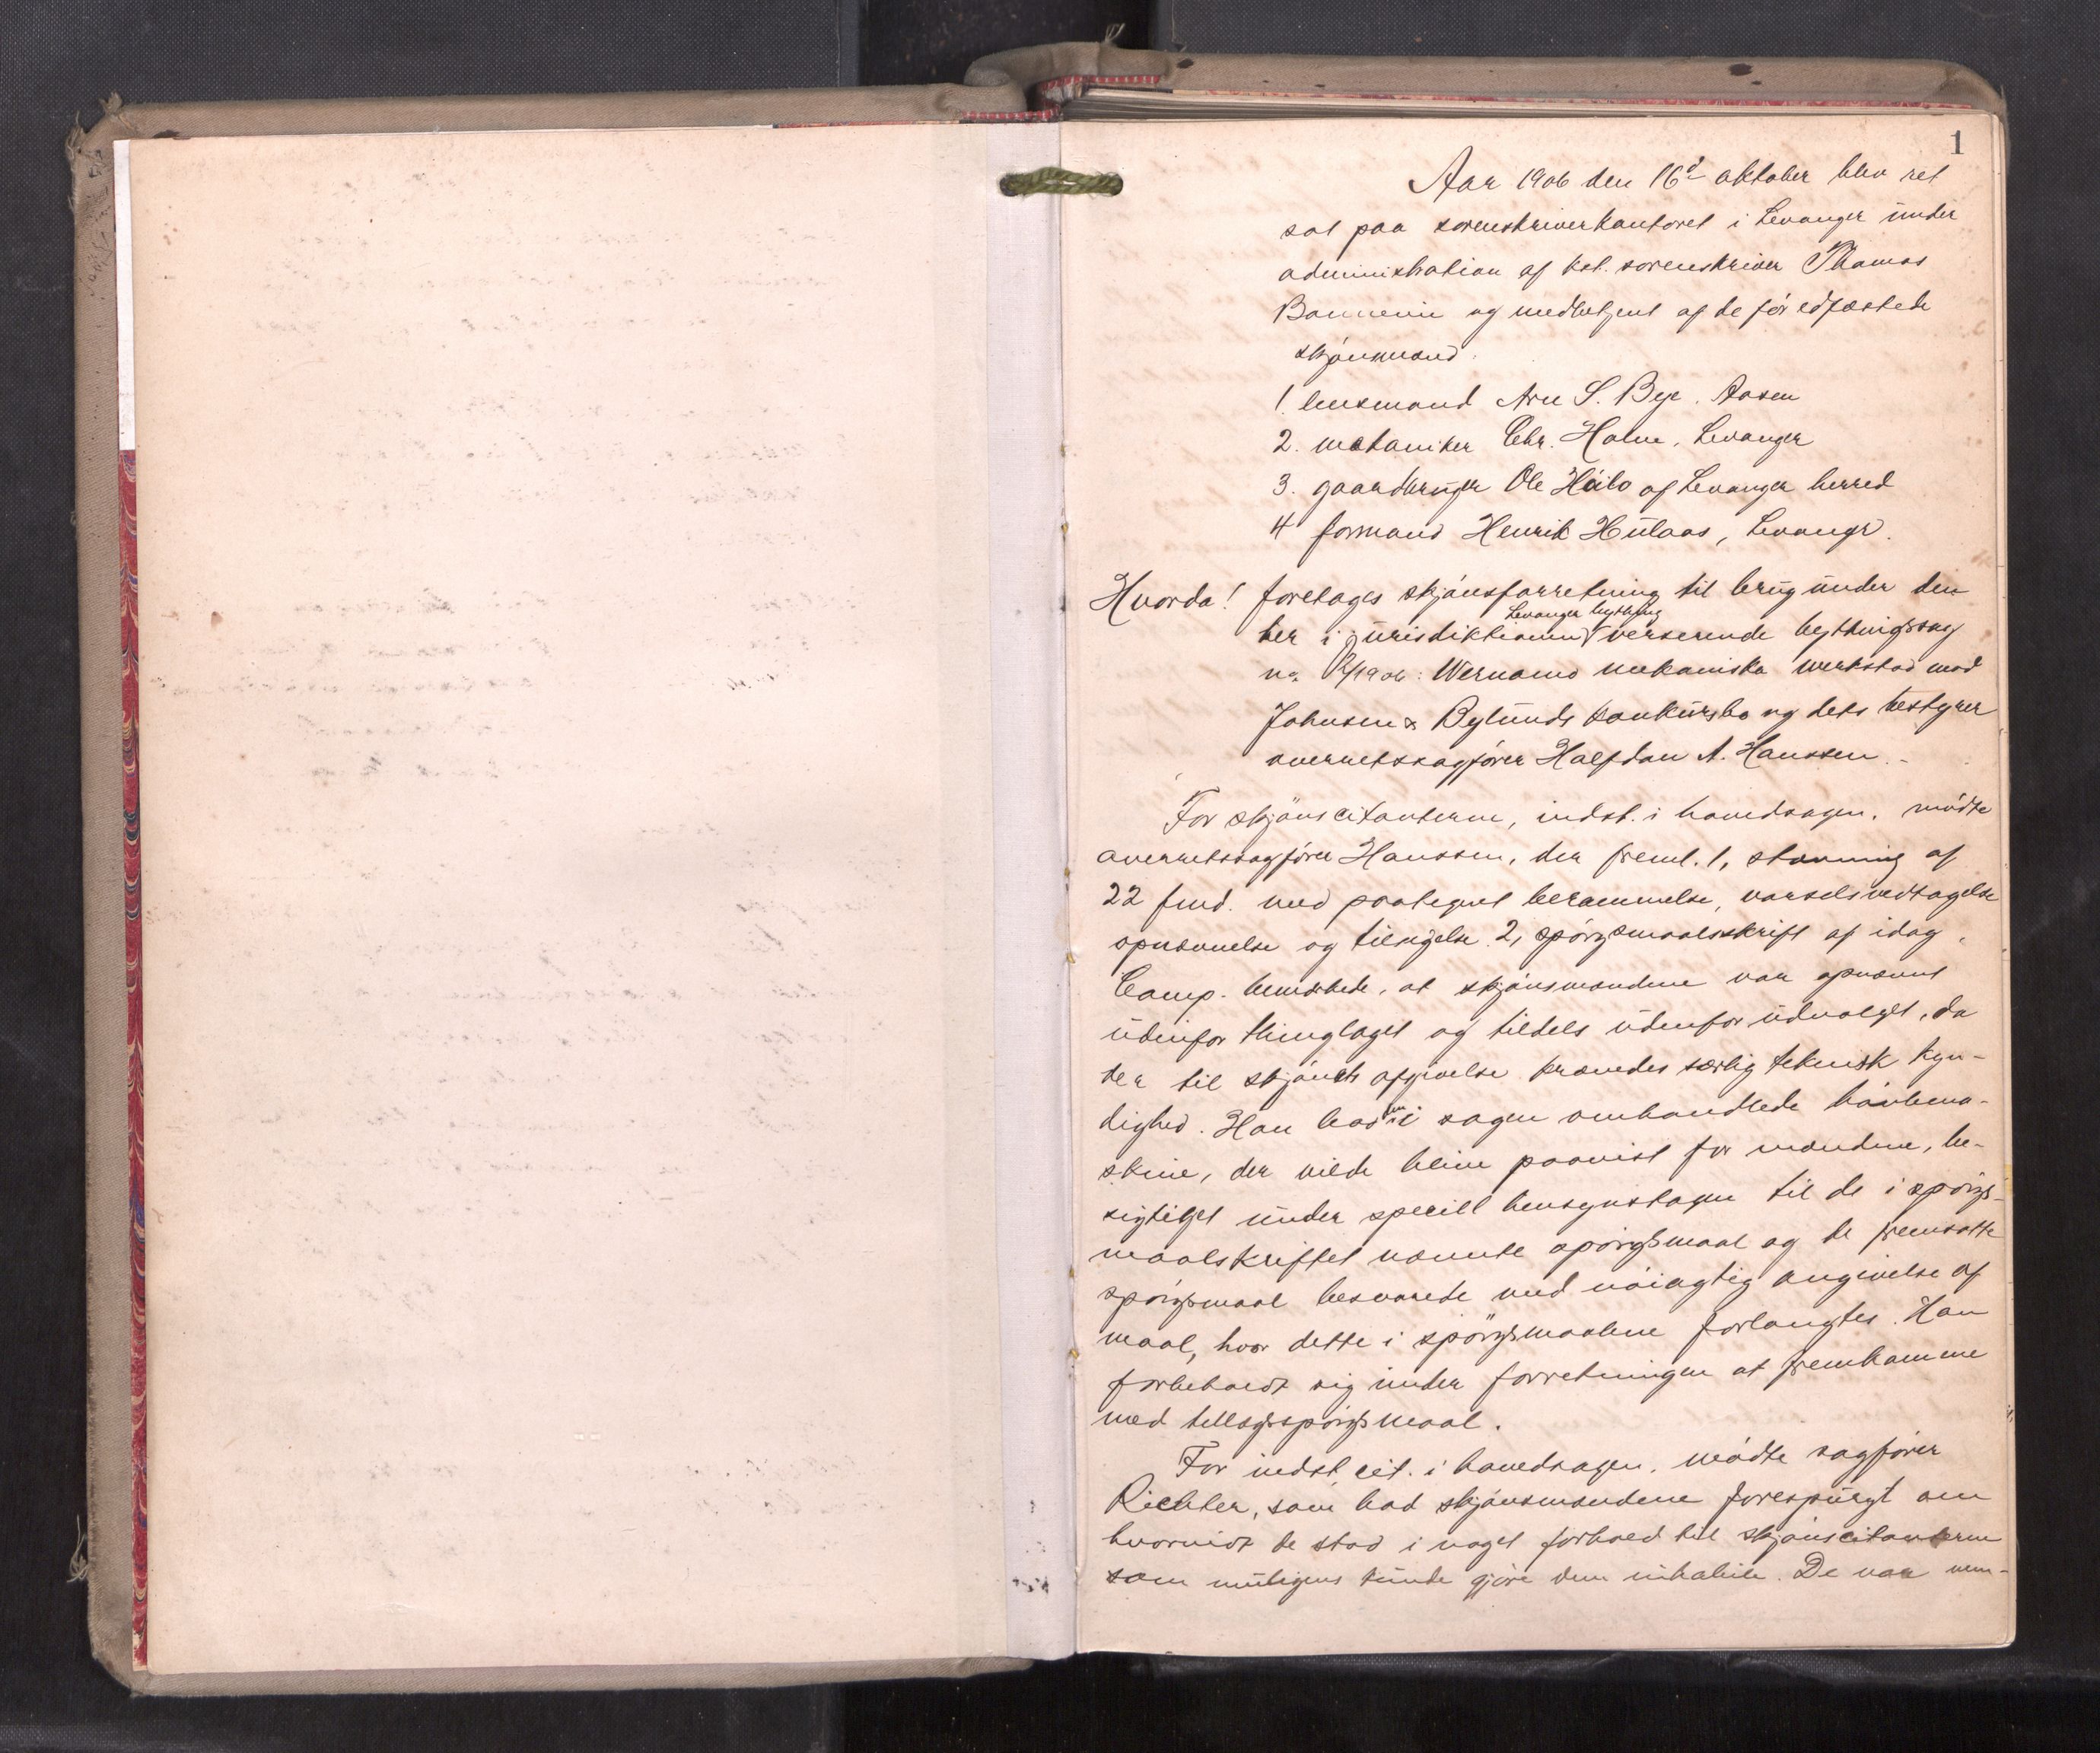 1
Aar 1906 den 16d oktober blev ret
sat paa sorenskriverkontoret i Levanger under
administration af kst. sorenskriver Thomas
Bonnevie og medbetjent af de før edfæstede
skjønsmænd:
1. lensmand Arn S. Bye. Aasen
2. mekaniker Chr. Holm, Levanger
3. gaardbruger Ole Heibo af Levanger herred
4 formand Henrik Hulaas, Levanger.
Hvorda! foretages skjønsforretning til brug under den
her i jurisdiktionen Levanger bything verserende bythingssag
no 12/1906: Wernamo mekaniska werkstad mod
Johnsen & Bylunds konkursbo og dets bestyrer
overretssagfører Halfdan A. Hanssen.-
For skjønscitanterne, indst. i hovedsagen. mødte
overretssagfører Hanssen, der freml. 1, stævning af
22 f.md. med paategnet berammelse, varselsvedtagelse
opnævnelse og tilsigelse. 2, spørgsmaalsskrift af idag.
Comp. bemærkede, at skjønsmændene var opnævnt
udenfor thinglaget og tildels udenfor udvalget, da
der til skjønets afgivelse krævedes særlig teknisk kyn-
dighed. Han bad den i sagen omhandlede høvlema-
skine, der vilde blive paavist for mændene, be-
sigtiget under speciell hensyntagen til de i spørgs-
maalskriftet nævnte spørgsmaal og de fremsatte
spørgsmaal besvarede med nøiagtig angivelse af
maal, hvor dette i spørgsmaalene forlangtes. Han
forbeholdt sig under forretningen at fremkomme
med tillægsspørgsmaal.
For indst. cit. i hovedsagen. mødte sagfører
Richter, som bad skjønsmændene forespurgt om
hvorvidt de stod i noget forhold til skjønscitanterne
som muligens kunde gjøre dem inhabile. De var